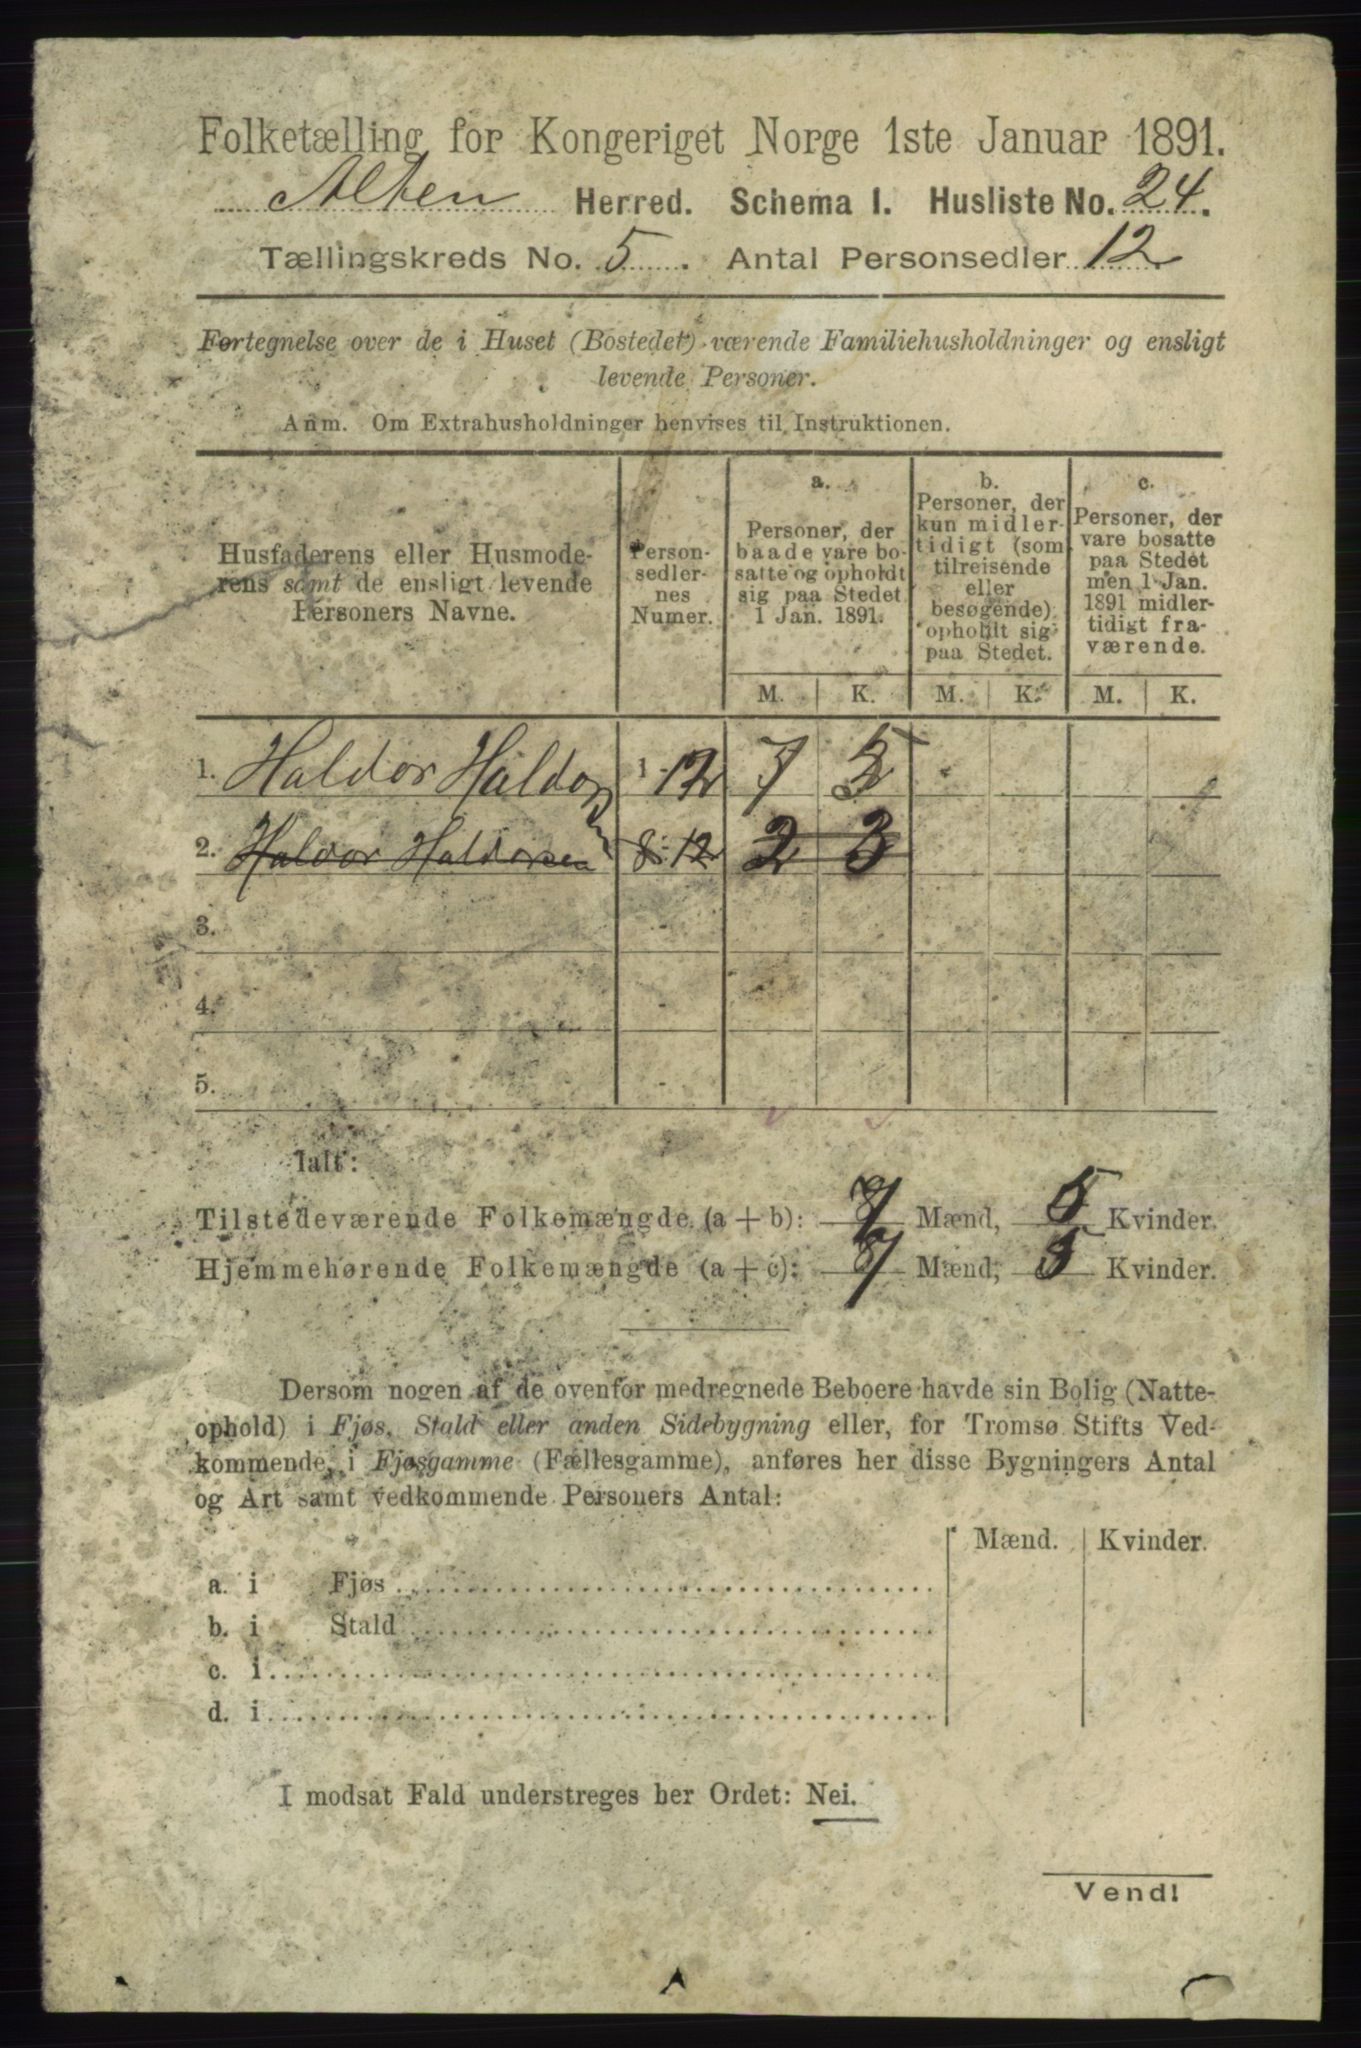 Folketælling for Kongeriget Norge 1ste Januar 1891.
Alten Herred. Schema I. Husliste No. 24.
Tællingskreds No. 5. Antal Personsedler 12
Fortegnelse over de i Huset (Bostedet) værende Familiehusholdninger og ensligt
levende Personer.
Anm. Om Extrahusholdninger henvises til Instruktionen.
Husfaderens eller Husmode-
rens samt de ensligt levende
Personers Navne.
Person-
sedler-
nes
Numer.
a.
Personer, der
baade vare bo-
satte og opholdt
sig paa Stedet
1 Jan. 1891.
b.
Personer, der
kun midler-
tidigt (som
tilreisende
eller
besøgende)
opholdt sig
paa Stedet.
c.
Personer, der
vare bosatte
paa Stedet
men 1 Jan.
1891 midler-
tidigt fra-
værende.
M. K. M. K. M. K.
1. Haldor Haldorsen 1 - 12 7 5
2. Haldor Haldorsen 8 - 12 2 3
3. -
4. -
5. -
Ialt:
Tilstedeværende Folkemængde (a + b): 7 Mænd, 5 Kvinder.
Hjemmehørende Folkemængde (a + c): 7 Mænd, 5 Kvinder.
Dersom nogen af de ovenfor medregnede Beboere havde sin Bolig (Natte-
ophold) i Fjøs, Stald eller anden Sidebygning eller, for Tromsø Stifts Ved-
kommende, i Fjøsgamme (Fællesgamme), anføres her disse Bygningers Antal
og Art samt vedkommende Personers Antal:
Mænd. Kvinder.
a. i Fjøs
b. i Stald
c. i
d. i
I modsat Fald understreges her Ordet: Nei.
Vend!